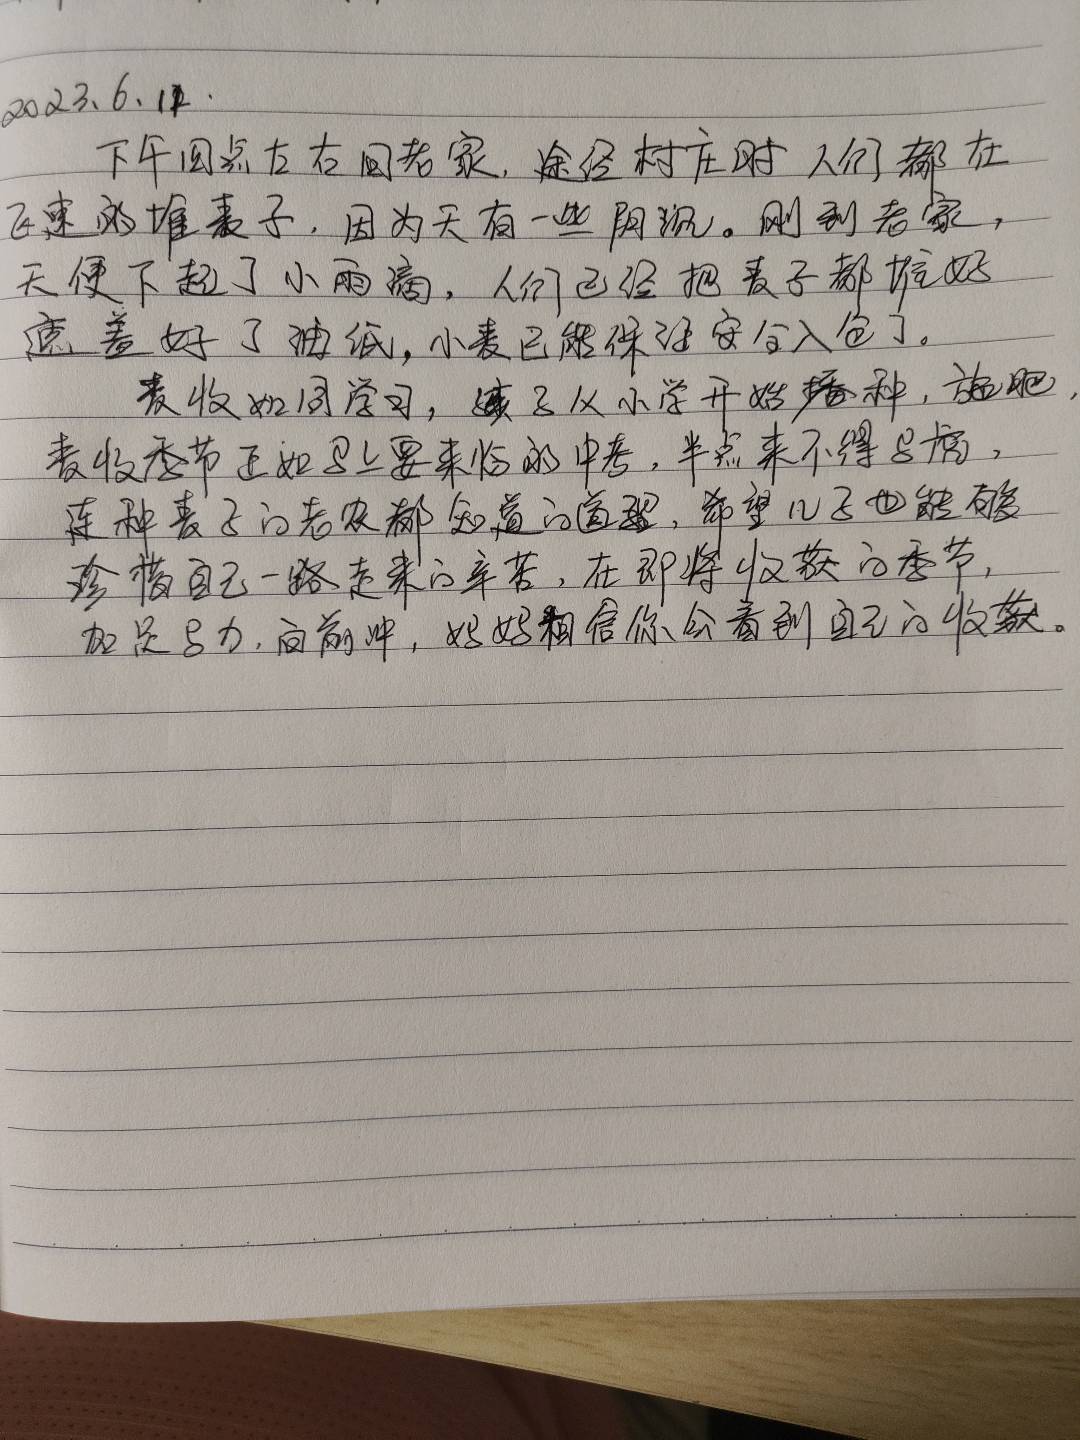 2023.6.11.
下午四点左右回老家，途经村庄时人们都在
飞速的堆麦子，因为天有一些阴沉。刚到老家，
天便下起了小雨滴，人们已经把麦子都堆好
盖好了油纸，小麦已能保证安全入仓了。
麦收如同学习，孩子从小学开始播种，施肥，
麦收季节正如马上要来临的中考，半点来不得马虎，
连种麦子的老农都知道的道理，希望儿子也能够
珍惜自己一路走来的辛苦，在即将收获的季节，
加足马力，向前冲，妈妈相信你会看到自己的收获。